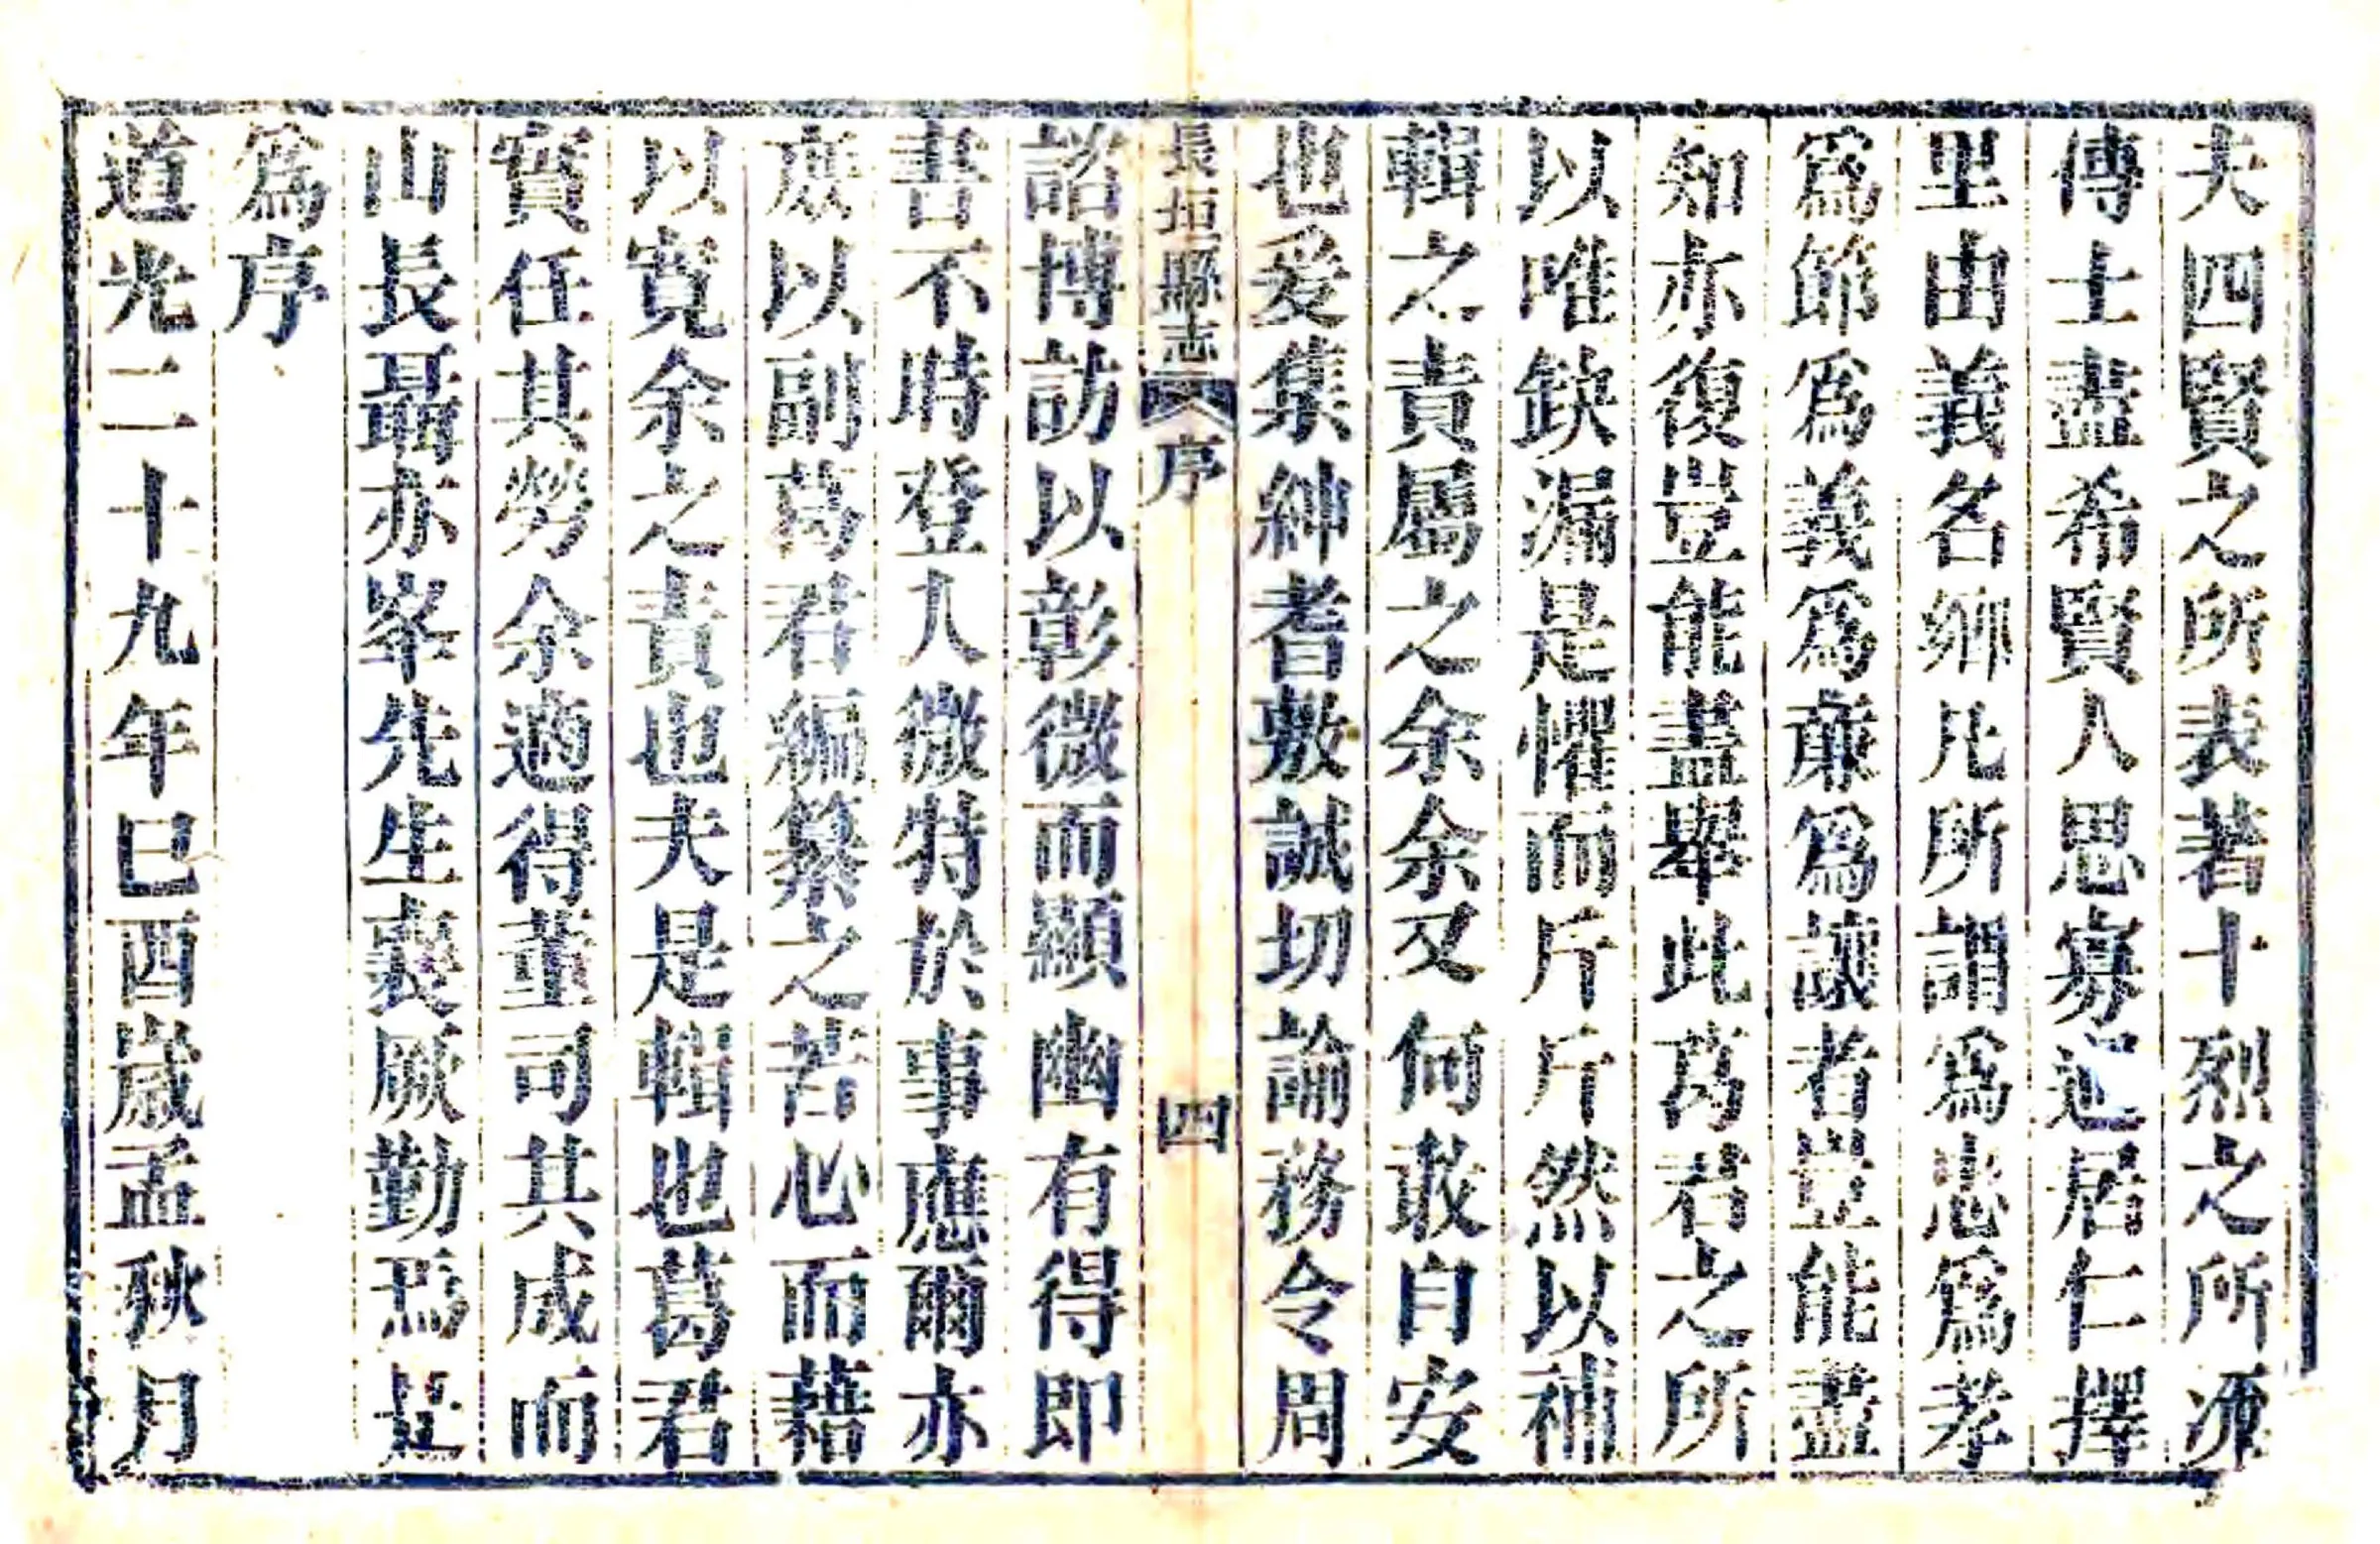 夫四賢之所表著十烈之所
傳士盡希賢人思寡過居仁擇
里由義名鄉凡所謂爲忠爲孝
爲節爲義爲廉爲讓者豈能盡
知亦復豈能盡舉此葛君之所
以唯缺漏是懼而斤斤然以補
輯之責屬之余余又何敢自安
也爰集紳耆敷誠切諭務令周
長垣縣志
序
四
諮博訪以彰微而顯幽有得即
書不時登人微特於事應爾亦
庶以副葛君編纂之苦心而藉
以寬余之責也夫是輯也葛君
實任其勞余適得董司其成而
山長聶亦峯先生襄厥勤焉是
爲序
道光二十九年巳酉歲孟秋月